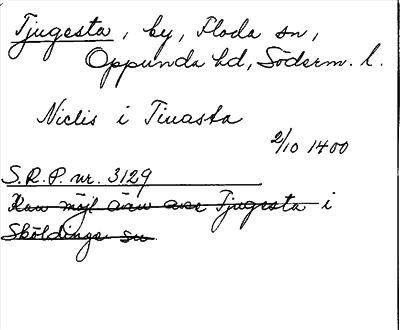 Tjugesta, by, Floda sn,
Oppunda hd, Söderm. l.
Niclis i Tiuasta
2/10 1400
S.R.P. nr. 3129
Kan möjl även avse Tjugesta i
Sköldinge sn